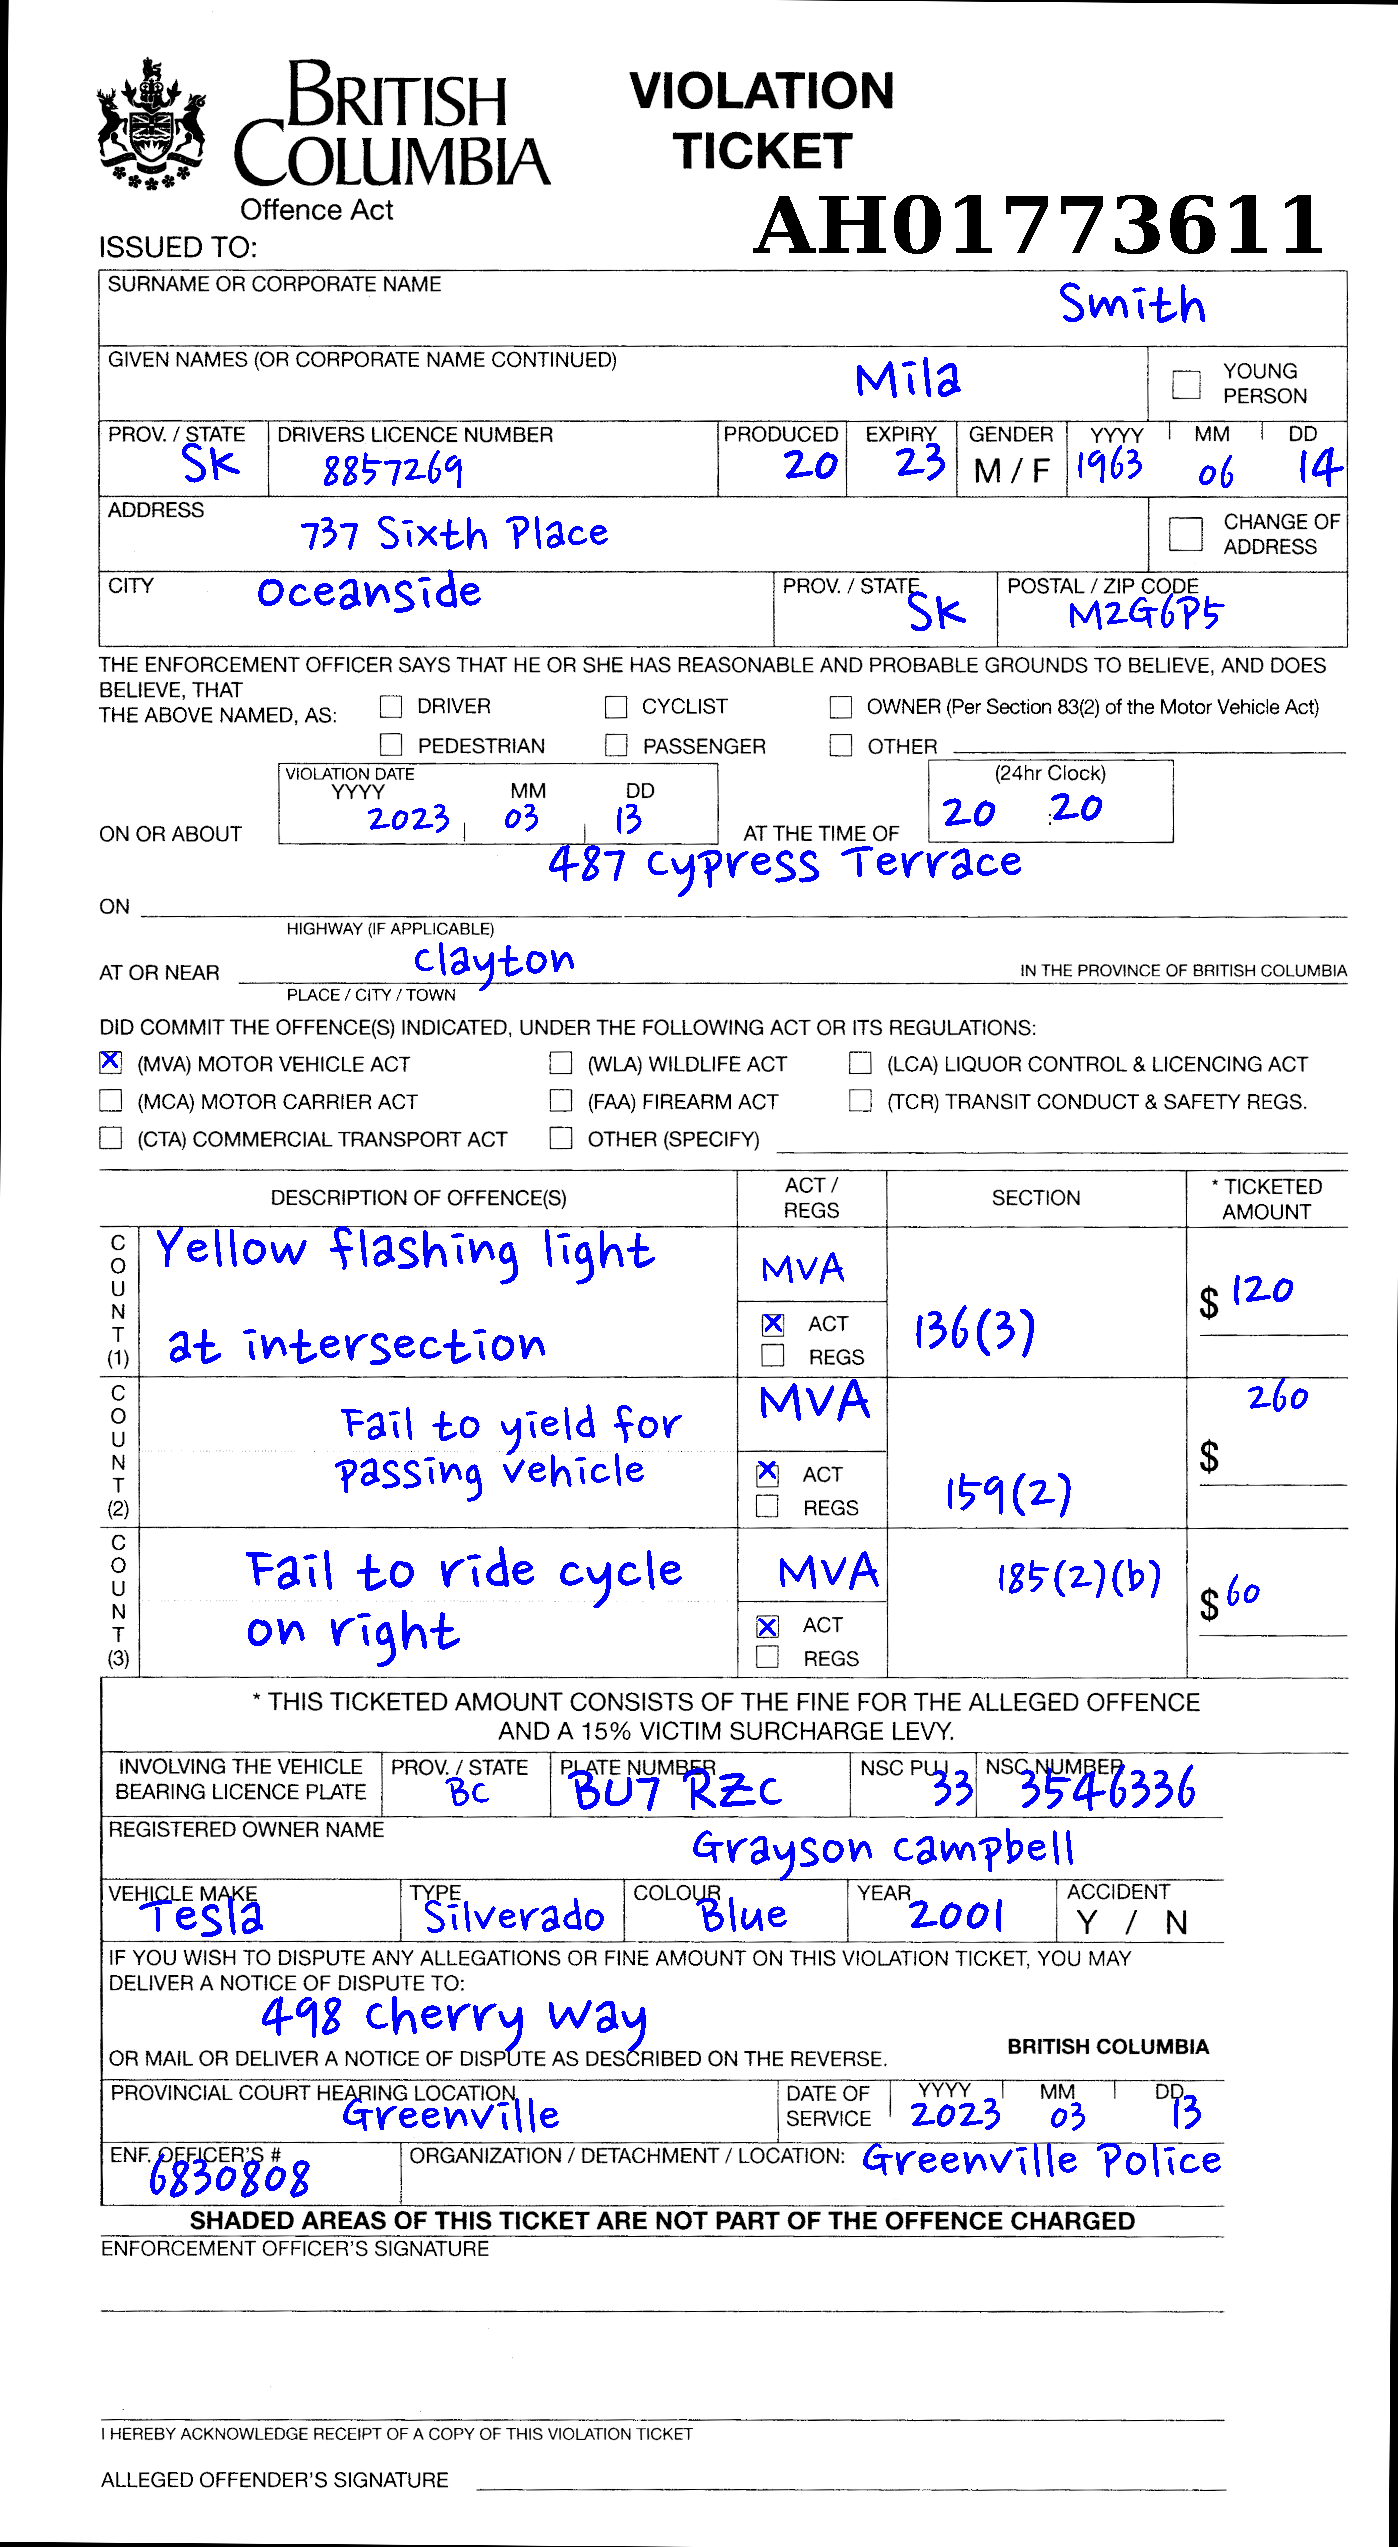 BRITISH
COLUMBIA
Offence Act
VIOLATION
TICKET
AH01773611
ISSUED TO:
SURNAME OR CORPORATE NAME
Smith
GIVEN NAMES (OR CORPORATE NAME CONTINUED)
Mila
YOUNG
PERSON
PROV. / STATE DRIVERS LICENCE NUMBER PRODUCED EXPIRY GENDER YYYY MM DD
SK 8857269 20 23 M / F 1963 06 14
ADDRESS
737 Sixth Place
CHANGE OF
ADDRESS
CITY PROV. / STATE POSTAL / ZIP CODE
Oceanside SK M2G6P5
THE ENFORCEMENT OFFICER SAYS THAT HE OR SHE HAS REASONABLE AND PROBABLE GROUNDS TO BELIEVE, AND DOES
BELIEVE, THAT
THE ABOVE NAMED, AS: DRIVER CYCLIST OWNER (Per Section 83(2) of the Motor Vehicle Act)
PEDESTRIAN PASSENGER OTHER
VIOLATION DATE (24hr Clock)
YYYY MM DD
ON OR ABOUT 2023 03 13 AT THE TIME OF 20 :20
487 Cypress Terrace
ON
HIGHWAY (IF APPLICABLE)
AT OR NEAR Clayton IN THE PROVINCE OF BRITISH COLUMBIA
PLACE / CITY / TOWN
DID COMMIT THE OFFENCE(S) INDICATED, UNDER THE FOLLOWING ACT OR ITS REGULATIONS:
X (MVA) MOTOR VEHICLE ACT (WLA) WILDLIFE ACT (LCA) LIQUOR CONTROL & LICENCING ACT
(MCA) MOTOR CARRIER ACT (FAA) FIREARM ACT (TCR) TRANSIT CONDUCT & SAFETY REGS.
(CTA) COMMERCIAL TRANSPORT ACT OTHER (SPECIFY)
DESCRIPTION OF OFFENCE(S) ACT / REGS SECTION * TICKETED AMOUNT
COUNT (1)
Yellow flashing light
at intersection
MVA
X ACT
REGS
136(3)
$ 120
COUNT (2)
Fail to yield for
passing vehicle
MVA
X ACT
REGS
159(2)
$ 260
COUNT (3)
Fail to ride cycle
on right
MVA
X ACT
REGS
185(2)(b)
$ 60
* THIS TICKETED AMOUNT CONSISTS OF THE FINE FOR THE ALLEGED OFFENCE
AND A 15% VICTIM SURCHARGE LEVY.
INVOLVING THE VEHICLE
BEARING LICENCE PLATE
PROV. / STATE PLATE NUMBER NSC PUJ NSC NUMBER
BC BU7 RZC 33 3546336
REGISTERED OWNER NAME
Grayson Campbell
VEHICLE MAKE TYPE COLOUR YEAR ACCIDENT
Tesla Silverado Blue 2001 Y / N
IF YOU WISH TO DISPUTE ANY ALLEGATIONS OR FINE AMOUNT ON THIS VIOLATION TICKET, YOU MAY
DELIVER A NOTICE OF DISPUTE TO:
498 Cherry Way
BRITISH COLUMBIA
OR MAIL OR DELIVER A NOTICE OF DISPUTE AS DESCRIBED ON THE REVERSE.
PROVINCIAL COURT HEARING LOCATION DATE OF SERVICE YYYY MM DD
Greenville 2023 03 13
ENF. OFFICER'S # ORGANIZATION / DETACHMENT / LOCATION:
6830808 Greenville Police
SHADED AREAS OF THIS TICKET ARE NOT PART OF THE OFFENCE CHARGED
ENFORCEMENT OFFICER'S SIGNATURE
I HEREBY ACKNOWLEDGE RECEIPT OF A COPY OF THIS VIOLATION TICKET
ALLEGED OFFENDER'S SIGNATURE